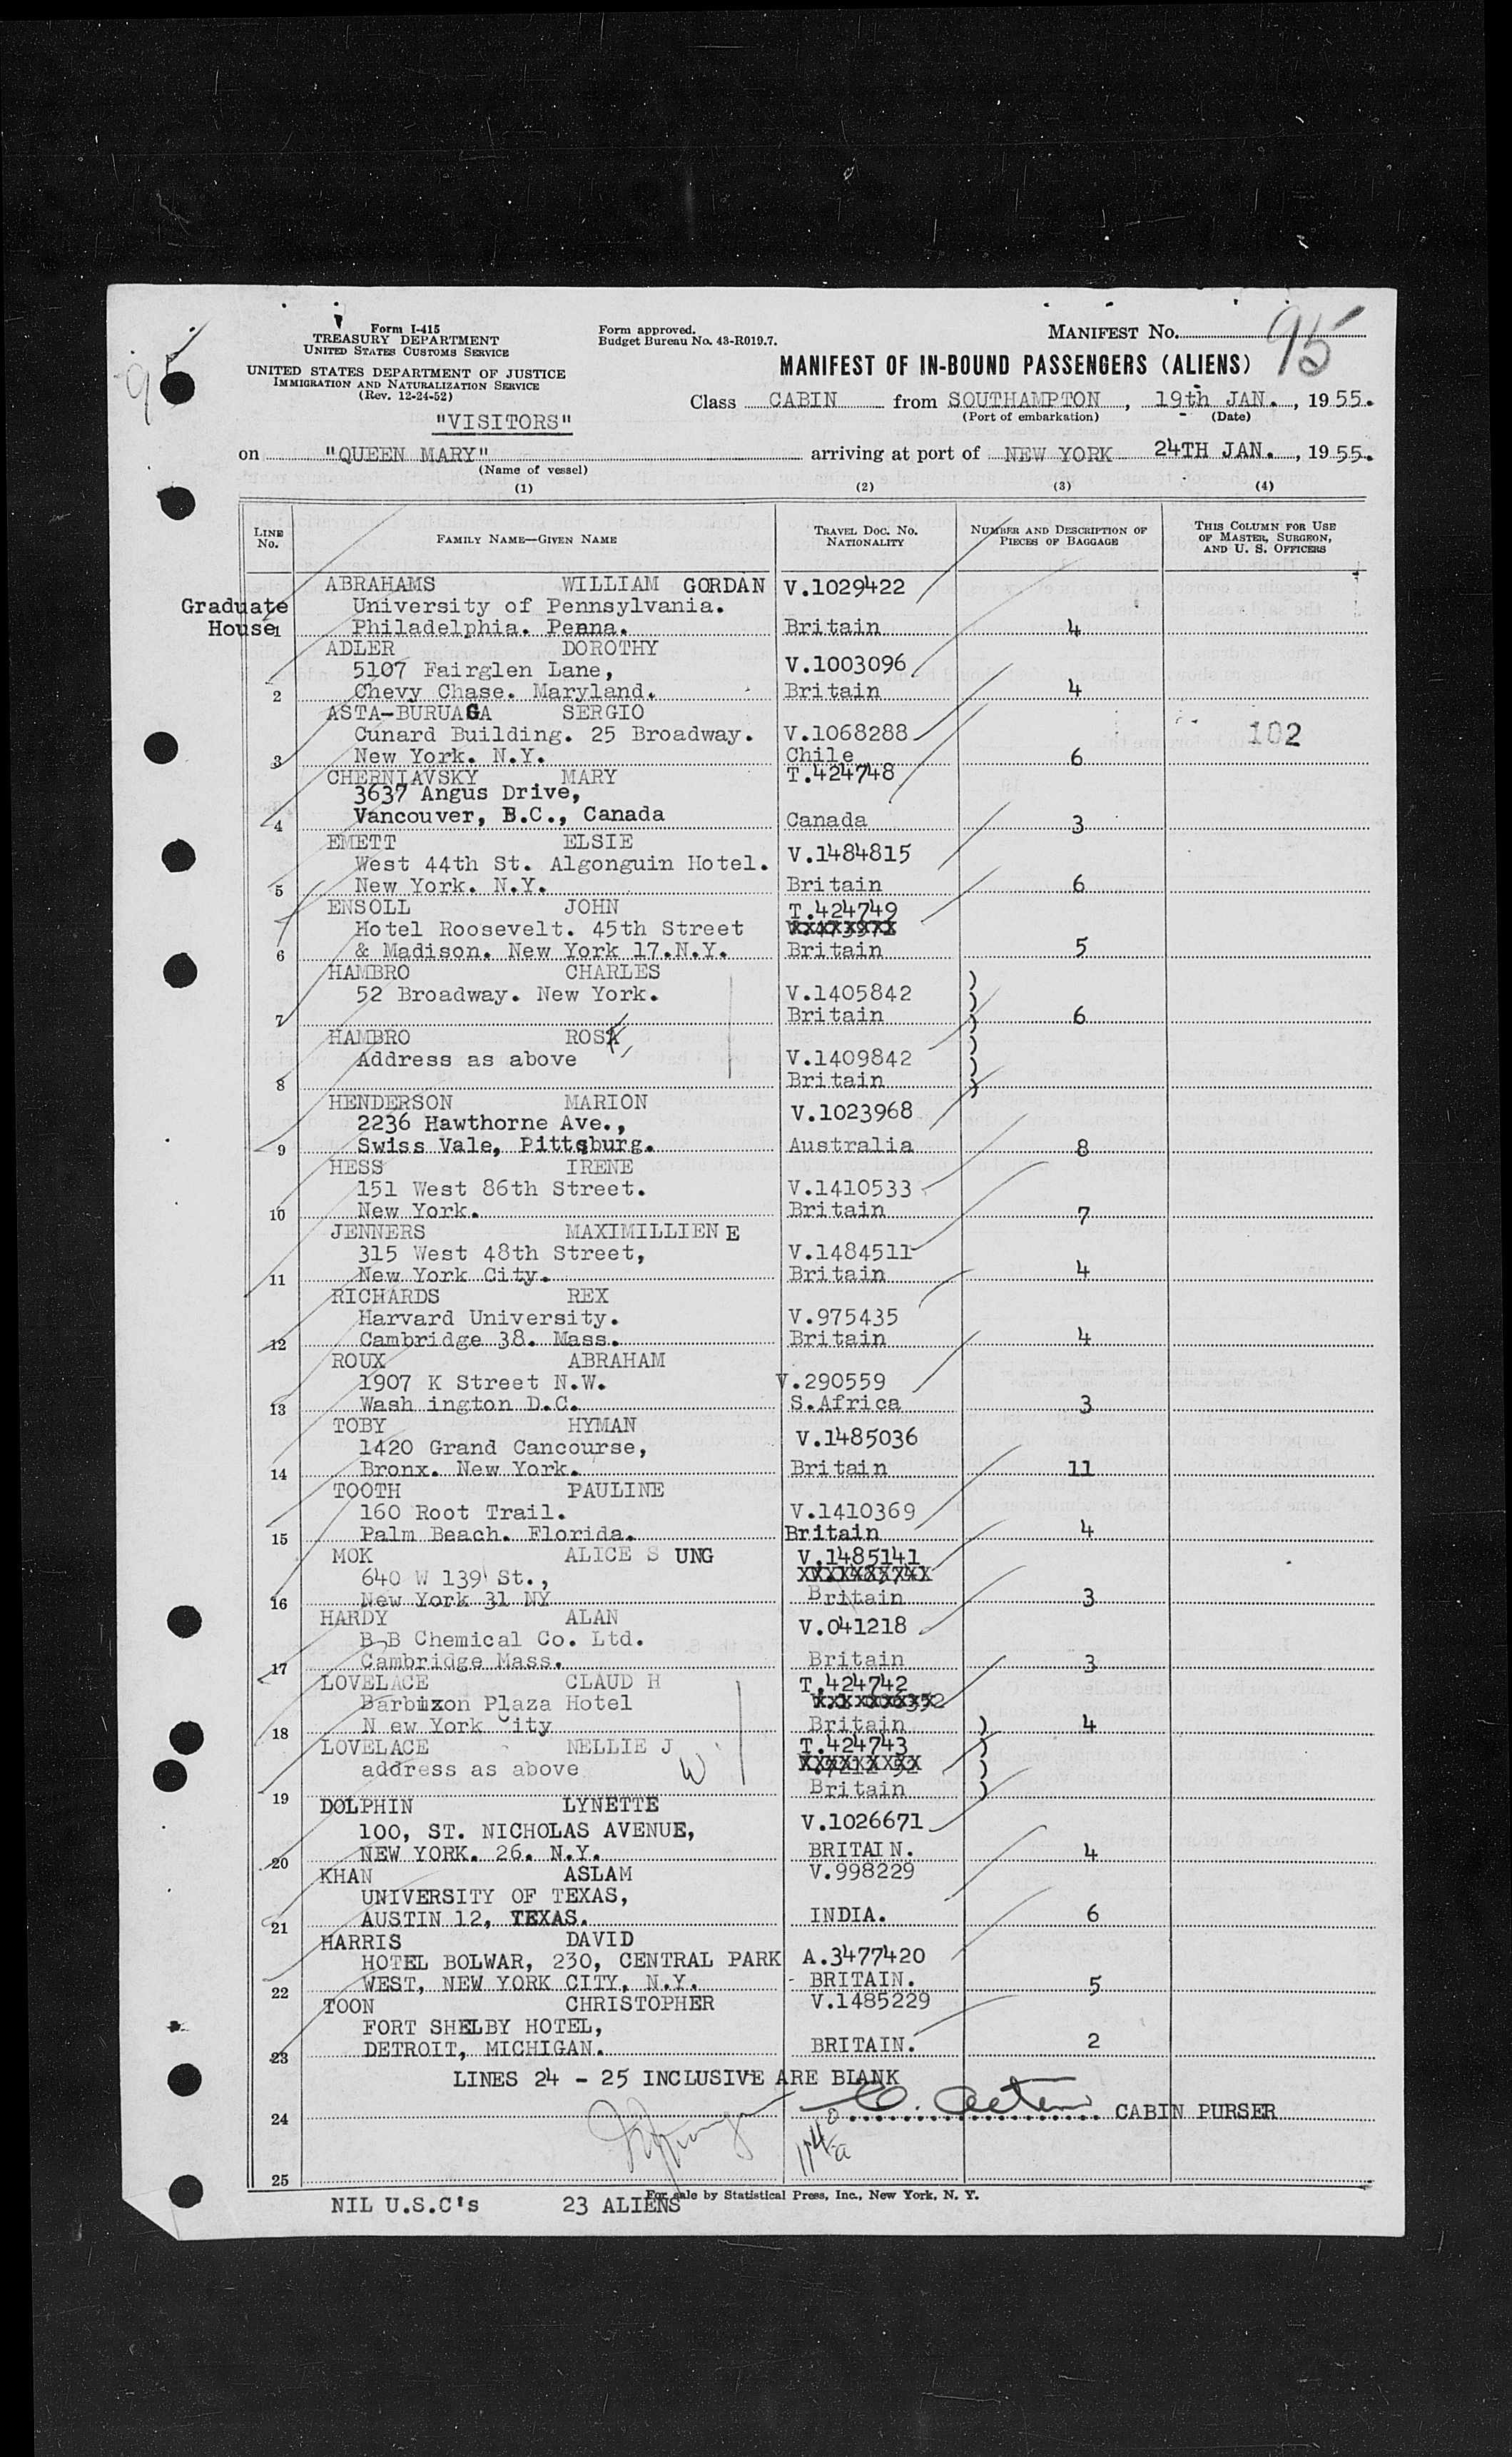 95
Form I-415
TREASURY DEPARTMENT
UNITED STATES CUSTOMS SERVICE
UNITED STATES DEPARTMENT OF JUSTICE
IMMIGRATION AND NATURALIZATION SERVICE
(Rev. 12-24-52)
Form approved.
Budget Bureau No. 43-R019.7.
MANIFEST No. 95
MANIFEST OF IN-BOUND PASSENGERS (ALIENS)
Class CABIN from SOUTHAMPTON, 19th JAN., 1955.
(Port of embarkation) (Date)
"VISITORS"
on "QUEEN MARY" arriving at port of NEW YORK 24TH JAN., 1955.
(Name of vessel)
(1) (2) (3) (4)
LINE No. FAMILY NAME—GIVEN NAME TRAVEL DOC. NO. NATIONALITY NUMBER AND DESCRIPTION OF PIECES OF BAGGAGE THIS COLUMN FOR USE OF MASTER, SURGEON, AND U. S. OFFICERS
ABRAHAMS WILLIAM GORDAN V.1029422
Graduate University of Pennsylvania.
House 1 Philadelphia. Penna. Britain 4
ADLER DOROTHY
5107 Fairglen Lane, V.1003096
2 Chevy Chase. Maryland. Britain 4
ASTA-BURUAGA SERGIO
Cunard Building. 25 Broadway. V.1068288 102
3 New York. N.Y. Chile 6
CHERNIAVSKY MARY T.424748
3637 Angus Drive,
4 Vancouver, B.C., Canada Canada 3
EMETT ELSIE
West 44th St. Algonguin Hotel. V.1484815
5 New York. N.Y. Britain 6
ENSOLL JOHN T.424749
Hotel Roosevelt. 45th Street
6 & Madison. New York 17.N.Y. Britain 5
HAMBRO CHARLES
52 Broadway. New York. V.1405842
7 Britain 6
HAMBRO ROSA
Address as above V.1409842
8 Britain
HENDERSON MARION V.1023968
2236 Hawthorne Ave.,
9 Swiss Vale, Pittsburg. Australia 8
HESS IRENE
151 West 86th Street. V.1410533
10 New York. Britain 7
JENNERS MAXIMILLIENE
315 West 48th Street, V.1484511
11 New York City. Britain 4
RICHARDS REX
Harvard University. V.975435
12 Cambridge 38. Mass. Britain 4
ROUX ABRAHAM
1907 K Street N.W. V.290559
13 Wash ington D.C. S.Africa 3
TOBY HYMAN
1420 Grand Cancourse, V.1485036
14 Bronx. New York. Britain 11
TOOTH PAULINE
160 Root Trail. V.1410369
15 Palm Beach. Florida. Britain 4
MOK ALICE S UNG V.1485141
640 W 139 St.,
16 New York 31 NY Britain 3
HARDY ALAN V.041218
B-B Chemical Co. Ltd.
17 Cambridge Mass. Britain 3
LOVELACE CLAUD H T.424742
Barbizon Plaza Hotel
18 N ew York City Britain 4
LOVELACE NELLIE J T.424743
address as above W
19 Britain
DOLPHIN LYNETTE
100, ST. NICHOLAS AVENUE, V.1026671
20 NEW YORK. 26. N.Y. BRITAIN. 4
KHAN ASLAM V.998229
UNIVERSITY OF TEXAS,
21 AUSTIN 12, TEXAS. INDIA. 6
HARRIS DAVID
HOTEL BOLWAR, 230, CENTRAL PARK A.3477420
22 WEST, NEW YORK CITY, N.Y. BRITAIN. 5
TOON CHRISTOPHER V.1485229
FORT SHELBY HOTEL,
23 DETROIT, MICHIGAN. BRITAIN. 2
LINES 24 - 25 INCLUSIVE ARE BLANK
24 CABIN PURSER
25
For sale by Statistical Press, Inc., New York, N. Y.
NIL U.S.C's 23 ALIENS